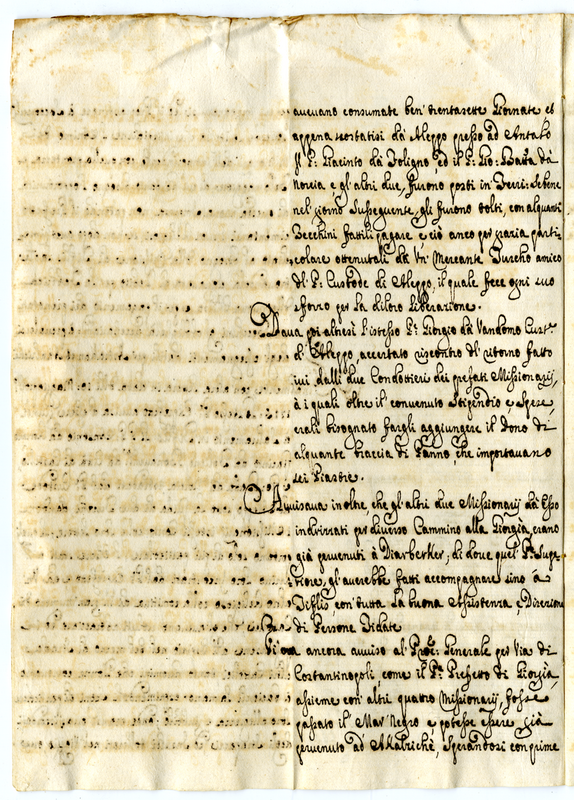 aueuano consumate ben' trentasette Giornate et
appena scostatisi dà Aleppo presso ad Antabo
Il P: Giacinto dà Foligno, ed il P: Gio: Batta dà
Norcia e gl'altri due, furono posti in Ferri: sebene
nel giorno susseguente, gli furono tolti, con alquanti
Zecchini fattili pagare e ciò anco per grazia parti
colare ottenutali dà Un' Mercante Turcho amico
del P: Custode di Aleppo, il quale fece ogni suo
sforzo per la diloro liberazione.
Daua poi altresi l'istesso P: Giorgio dà Vandomo Cust:
d'Aleppo, accertato riscontro del ritorno fatto
iui dalli due Condottieri dei prefati Missionarij,
à i quali oltre il conuenuto Stipendio e Spese,
erali bisognato fargli aggiungere il dono di
alquante braccia di Panno, che importauano
sei Piastre.
Auuisaua inoltre, che gl'altri due Missionarij dà Esso
indirizzati per diuerso Cammino alla Giorgia, erano
già peruenuti à Diarbecker; di doue quel P: Supe
riore, gl'auerebbe fatti accompagnare sino à
Tiflis con tutta la buona Assistenza e Direzione
di Persone Fidate
ancora auuiso al Proc: Generale per Via di
Costantinopoli, come il P: Prefetto di Giorgia,
assieme con altri quattro Missionarij, fosse
passato il Mar' Negro e potesse essere già
peruenuto ad Akalzichè, Sperandosi con prime